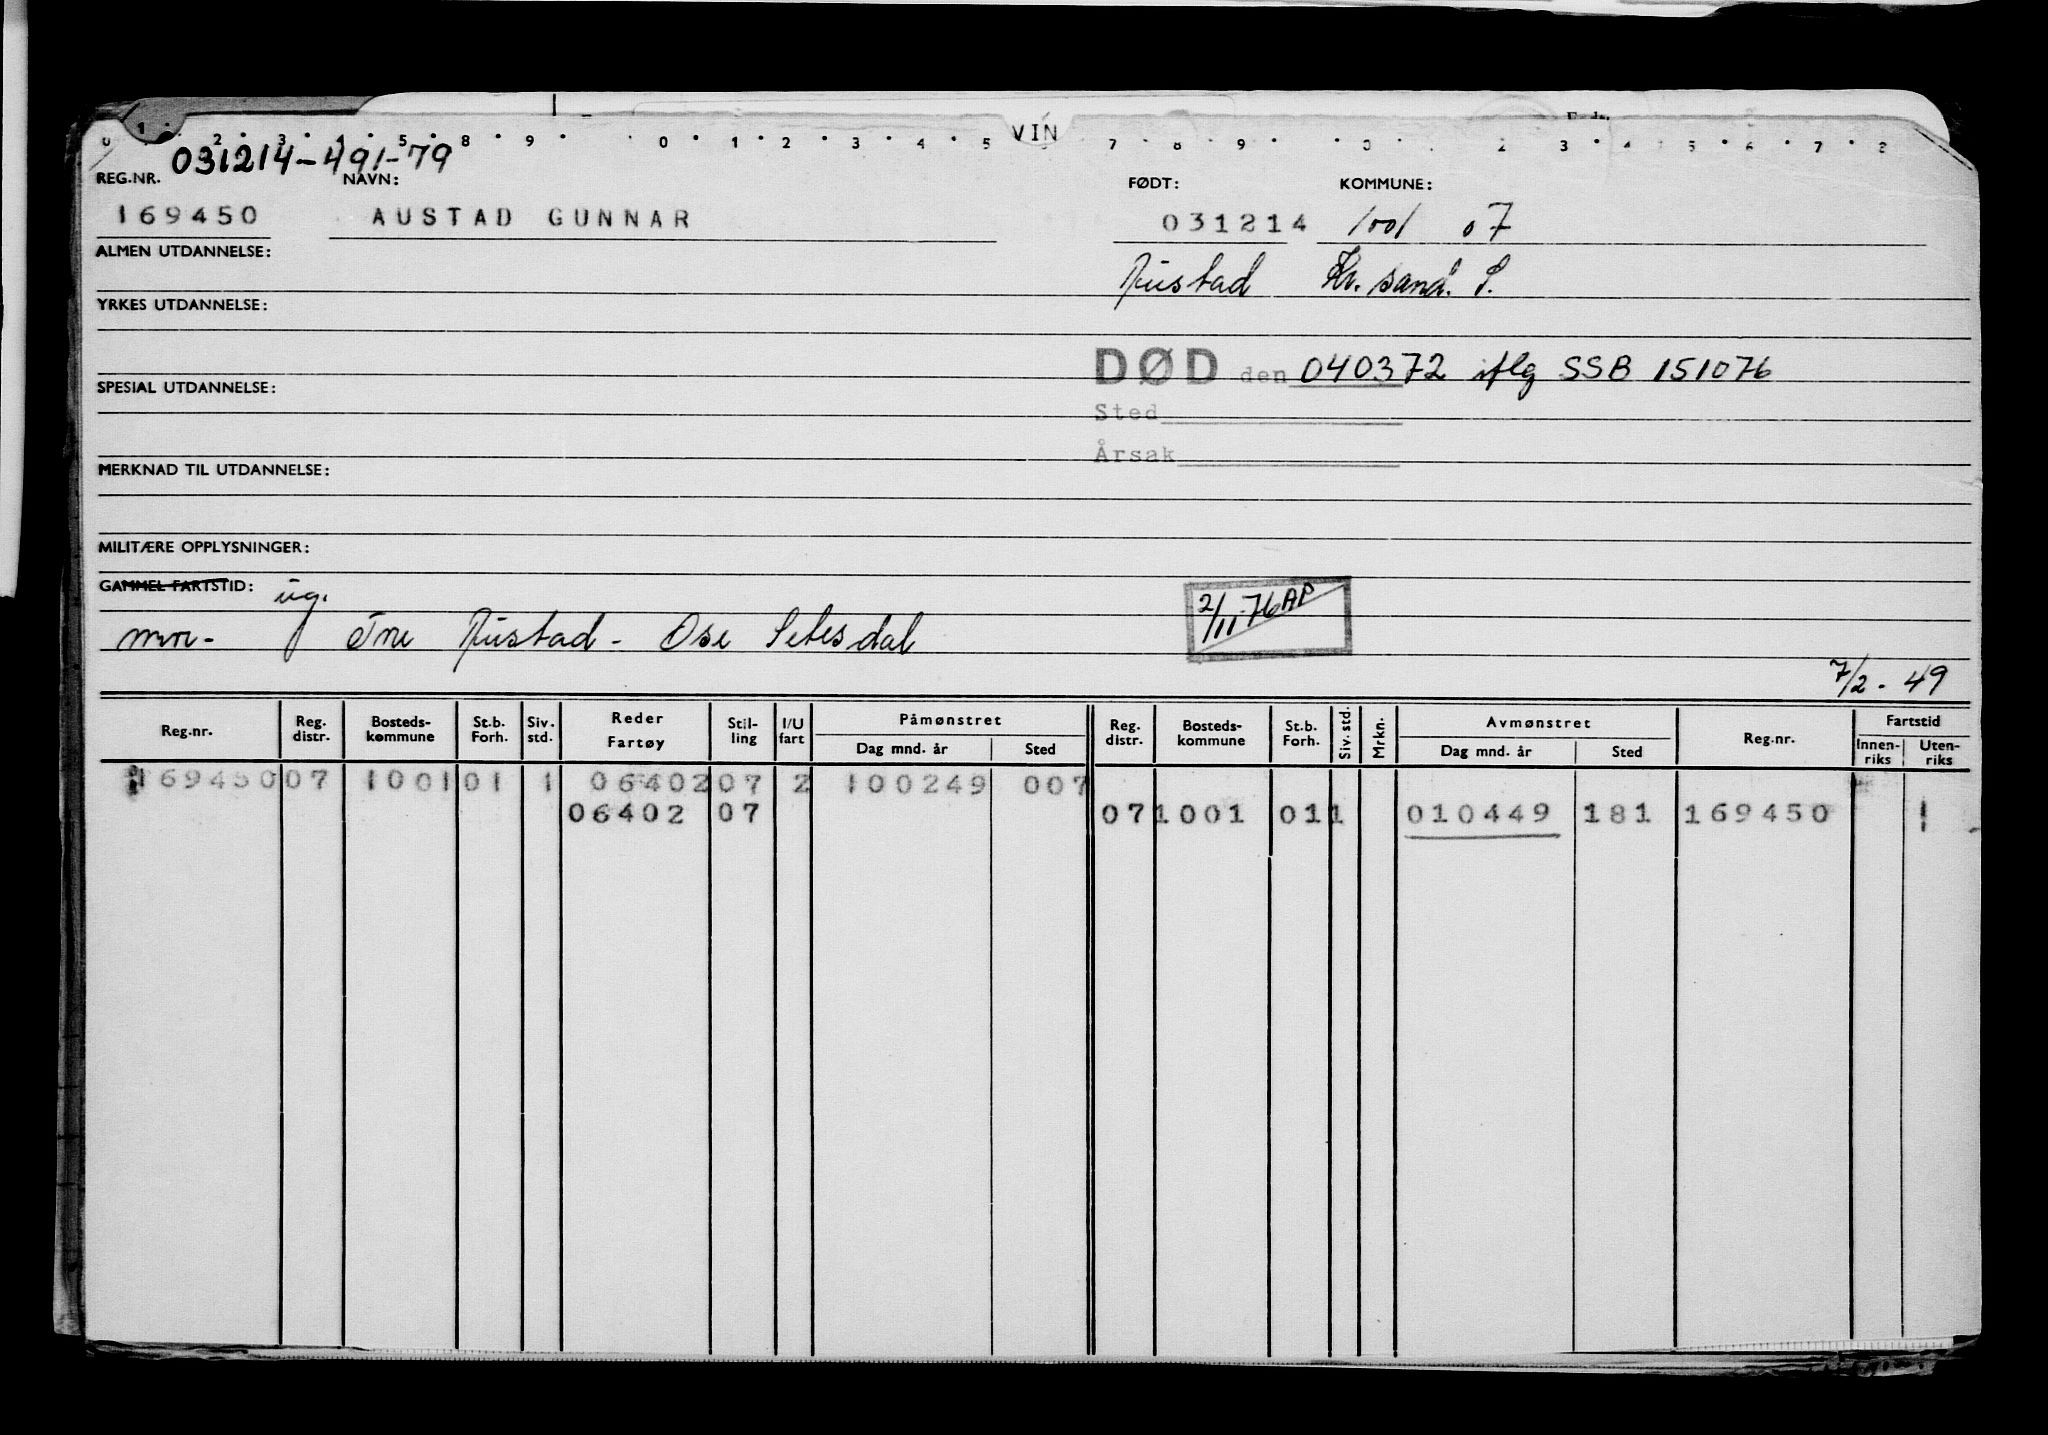 VIN
031214-491-79
REG.NR. NAVN: FØDT: KOMMUNE:
169450 AUSTAD GUNNAR 031214 1001 07
ALMEN UTDANNELSE: Austad Kr. sand. S.
YRKES UTDANNELSE:
DØD den 040372 iflg SSB 151076
SPESIAL UTDANNELSE:
Sted
Årsak
MERKNAD TIL UTDANNELSE:
MILITÆRE OPPLYSNINGER:
GAMMEL FARTSTID: ug.
2/11 76 AP
mor - Austad - Ose Setesdal
7/2 - 49
Reg.nr. Reg. distr. Bosteds-kommune St.b. Forh. Siv. std. Reder Fartøy Stil-ling I/U fart Påmønstret Dag mnd. år Sted Reg. distr. Bosteds-kommune St.b. Forh. Siv. std. Mrkn. Avmønstret Dag mnd. år Sted Reg.nr. Fartstid Innen-riks Uten-riks
169450 07 1001 01 1 06402 07 2 100249 007
06402 07 07 1001 01 1 010449 181 169450 1